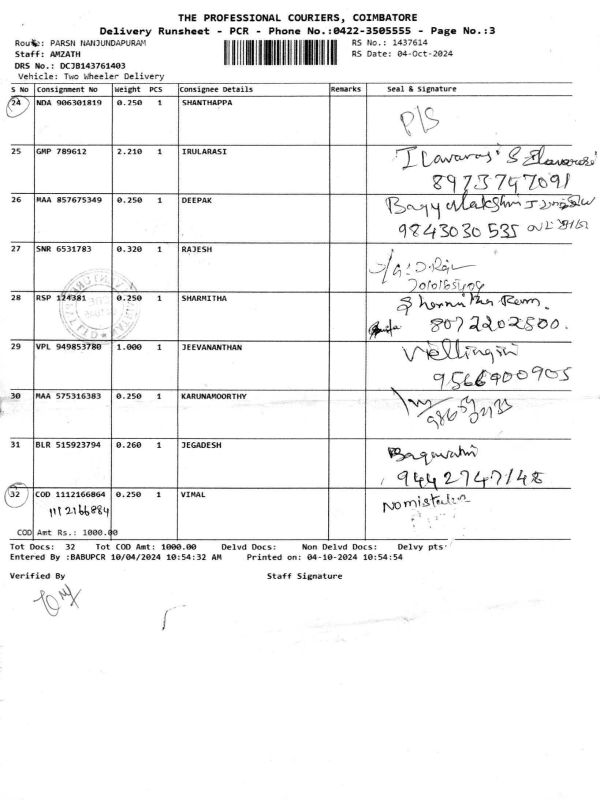 THE PROFESSIONAL COURIERS, COIMBATORE
Delivery Runsheet - PCR - Phone No.:0422-3505555 - Page No.:3
Route: PARSN NANJUNDAPURAM RS No.: 1437614
Staff: AMZATH RS Date: 04-Oct-2024
DRS No.: DCJB143761403
Vehicle: Two Wheeler Delivery
S No Consignment No Weight PCS Consignee Details Remarks Seal & Signature
24 NDA 906301819 0.250 1 SHANTHAPPA
P/S
25 GMP 789612 2.210 1 IRULARASI
Ilavarasi S
8973747091
26 MAA 857675349 0.250 1 DEEPAK
9843030535
27 SNR 6531783 0.320 1 RAJESH
28 RSP 124381 0.250 1 SHARMITHA
8072202500.
29 VPL 949853780 1.000 1 JEEVANANTHAN
9566900905
30 MAA 575316383 0.250 1 KARUNAMOORTHY
31 BLR 515923794 0.260 1 JEGADESH
9442747148
32 COD 1112166864 0.250 1 VIMAL
1112166864
COD Amt Rs.: 1000.00
Tot Docs: 32 Tot COD Amt: 1000.00 Delvd Docs: Non Delvd Docs: Delvy pts
Entered By :BABUPCR 10/04/2024 10:54:32 AM Printed on: 04-10-2024 10:54:54
Verified By Staff Signature